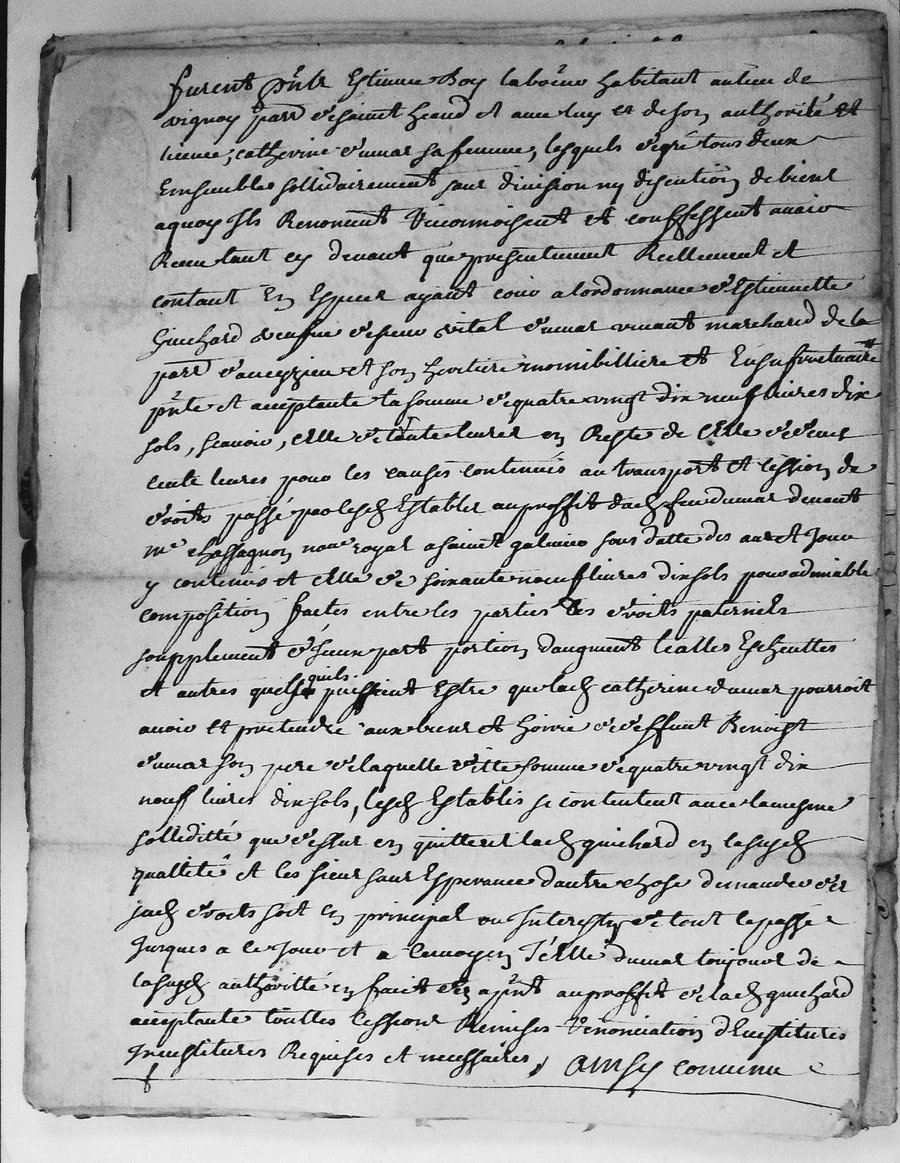 furent pnts Estienne Roy laboureur habitant au lieu de
vignoy parr de saint heand et avec luy et de son authorité et
licence, catherine dumas sa femme, lesquels de gré tous deux
Ensembles sollidairement sans division ny discution de biens
a quoy Ils Renoncent Reconnoissent et conffessent avoir
Receu tant cy devant que présentement Reellement et
contant En Especes ayant cour a lordonnance d'Estiennette
Guichard veufve de feu vital dumas vivant marchand de la
parr d'aveyzieu et son heritiere momibilliere et Ensufructuaire
pnte et acceptante la somme de quatre vingt dix neuf livres dix
sols, scavoir, celle de trante livres en Reste de Celle de
cente livres pour les causes contenues au transport et cession de
droits passé par lesd Establis au proffit dud feu dumas devant
me chassagnon nore royal a saint galmier sous datte des an et Jour
y contenus et celle de soixante neuf livres dix sols pour admiable
composition faites entre les parties des droits paternels
soupplement d'Iceux part portion daugment lealles Escheuttes
et autres quels quils puissent Estre que lad catherine dumas pourroit
avoir et pretendre aux biens et hoirie de deffunt Benoist
dumas son pere de laquelle ditte somme de quatre vingt dix
neuf livres dix sols, lesd Establis se contentent avec la mesme
solliditté que dessus en quittent lad guichard en lasusd
quallité et les siens sans Esperance dautre chose demander des
susd droits soit en principal ou Interests de tout le passé
Jusques a ce Jour et a ce moyen Icelle dumas toujours de
lasusd authoritté en fait des a pnt au proffit de lad guichard
acceptante touttes cessions Remises Renonciation dEvestitures
Invistitures Requises et necessaires, ainsy convenu